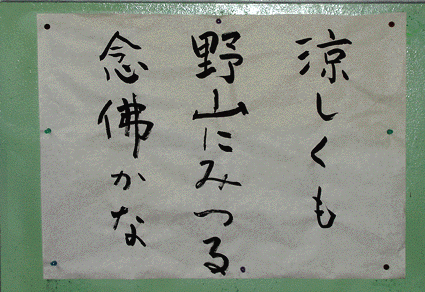 涼しくも
野山にみつる
念佛かな